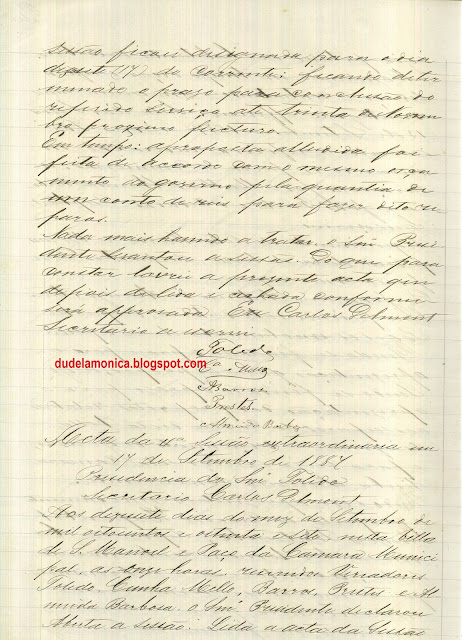 sessão ficou designada para o dia
desesete (17) do corrente: ficando deter
minado o praso para conclusão do
referido serviço até trinta de
bro proximo futuro.
Em tempo: a proposta alludida foi
feita de accordo com o mesmo orça
mento do governo pela quantia de
um conto de reis para fazer ditos re
paros.
Nada mais havendo a tratar o Snr Presi
dente levantou a sessão. Do que para
constar lavrei a presente acta que
depois de lida e achada conforme
será approvada. Eu Carlos Delmont
Secretario a escrevi
Toledo
dudelamonica.blogspot.com
Ca Mello
Barros
Prestes
Almeida Barbosa
Acta da 4a Sessão extraordinaria em
17 de Setembro de 1887
Presidencia do Snr Toledo
Secretario Carlos Delmont
Aos desesete dias do mez de Setembro de
mil oitocentos e oitenta e sete nesta Villa
de S. Manoel e Paço da Camara Munici
pal, as horas, reunidos Vereadores
Toledo, Cunha Mello, Barros, Prestes e Al
meida Barbosa o Snr Presidente declarou
aberta a sessão. Lida a acta da sessão